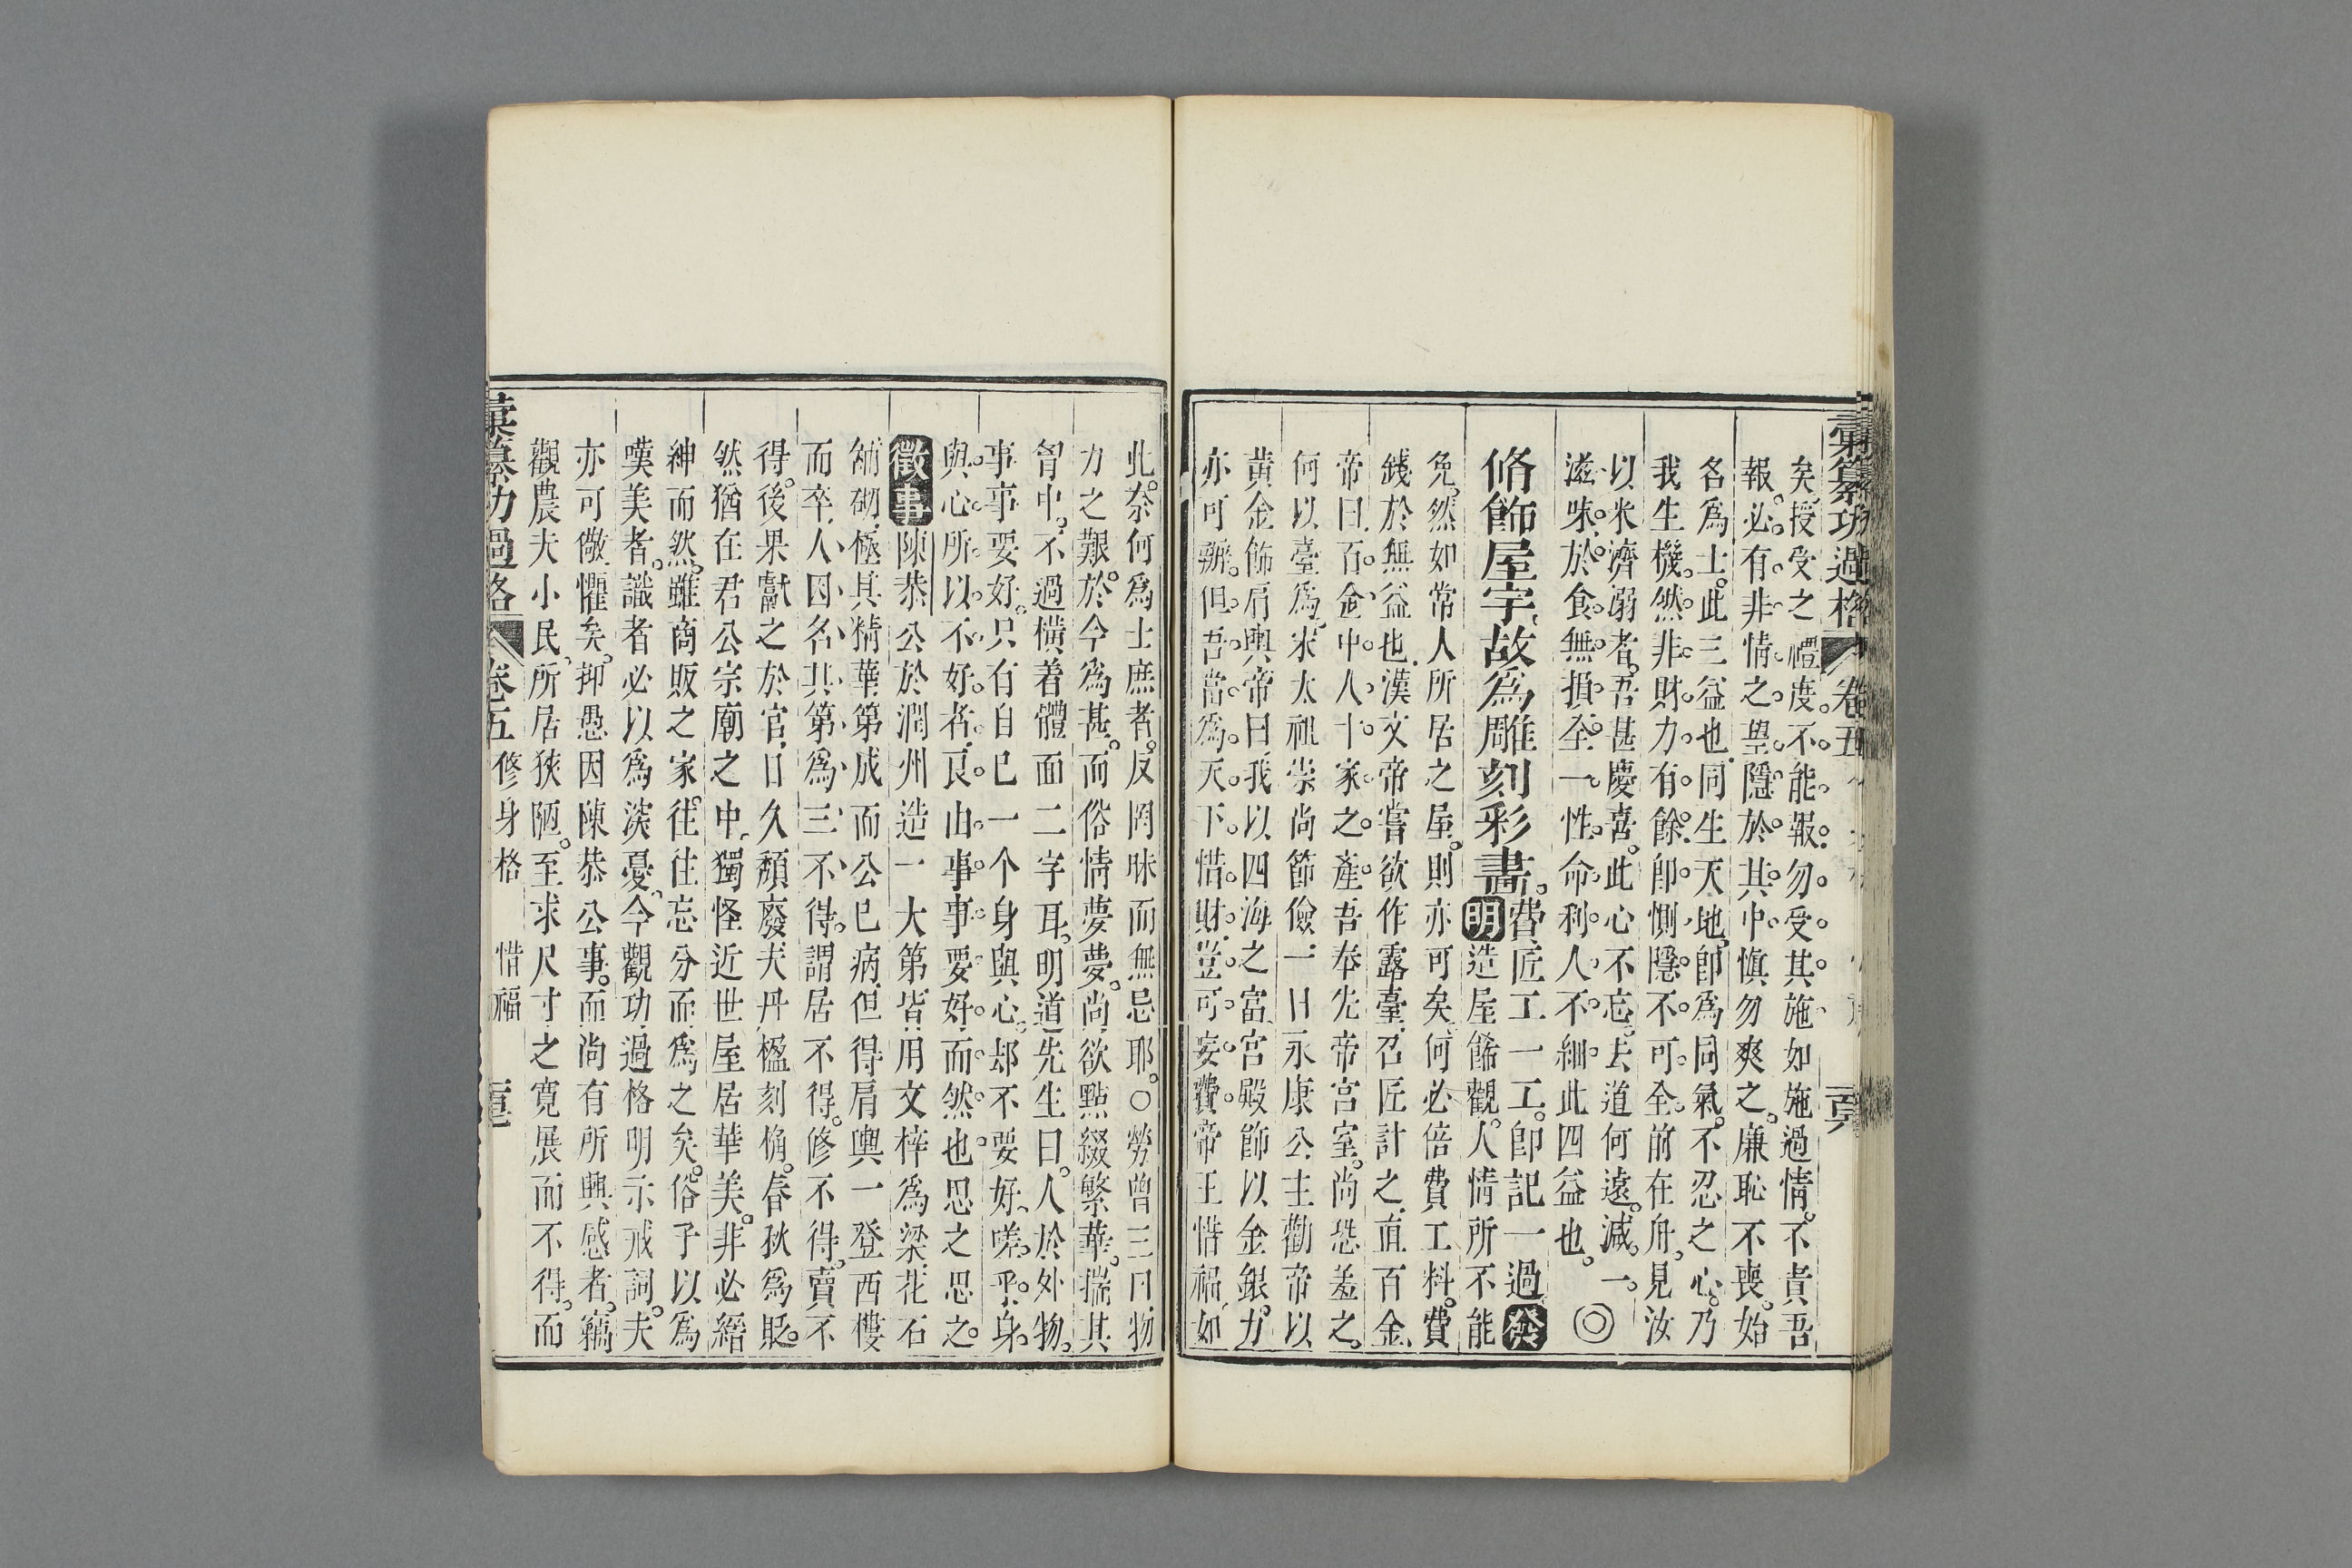 彙纂功過格 卷五
矣。授受之禮度。不能報。勿受其施。如施過情。不責吾
報。必有非情之望。隱於其中。愼勿爽之。廉恥不喪。始
名爲士。此三益也。同生天地。卽爲同氣。不忍之心。乃
我生機。然非財力有餘。卽惻隱不可全。前在舟。見汝
以米濟溺者。吾甚慶喜。此心不忘。去道何遠。減一。
滋味。於食無損。全一性命。利人不細。此四益也。◎
脩飾屋宇。故爲雕刻彩畫。費匠工一工。卽記一過。發
明造屋餙觀。人情所不能
免。然如常人所居之屋。則亦可矣。何必倍費工料。費
錢於無益也。漢文帝嘗欲作露臺。召匠計之。直百金。
帝曰。百金。中人十家之產。吾奉先帝宮室。尚恐羞之。
何以臺爲。宋太祖崇尚節儉。一日永康公主勸帝以
黃金飾肩輿。帝曰。我以四海之富。宮殿飾以金銀。力
亦可辦。但吾當爲天下惜財。豈可妄費。帝王惜福如
此。奈何爲士庶者。反罔昧而無忌耶。○勞曾三曰。物
力之艱。於今爲甚。而俗情夢夢。尚欲點綴繁華。揣其
胷中。不過橫着體面二字耳。明道先生曰。人於外物。
事事要好。只有自已一个身與心。却不要好。嗟乎。身
與心所以不好者。良由事事要好而然也。思之思之。
徵事陳恭公於潤州造一大第。皆用文梓爲梁。花石
舖砌。極其精華。第成而公已病。但得肩輿一登西樓
而卒。人因名其第爲三不得。謂居不得。修不得。賣不
得。後果獻之於官。日久頹廢。夫丹楹刻桷。春秋爲貶。
然猶在君公宗廟之中。獨怪近世屋居華美。非必縉
紳而然。雖商販之家。往往忘分而爲之矣。俗子以爲
嘆美者。識者必以爲深憂。今觀功過格明示戒詞。夫
亦可儆懼矣。抑愚因陳恭公事。而尚有所興感者。竊
觀農夫小民。所居狹陋。至求尺寸之寬展而不得。而
彙纂功過格 卷五 修身格 惜福